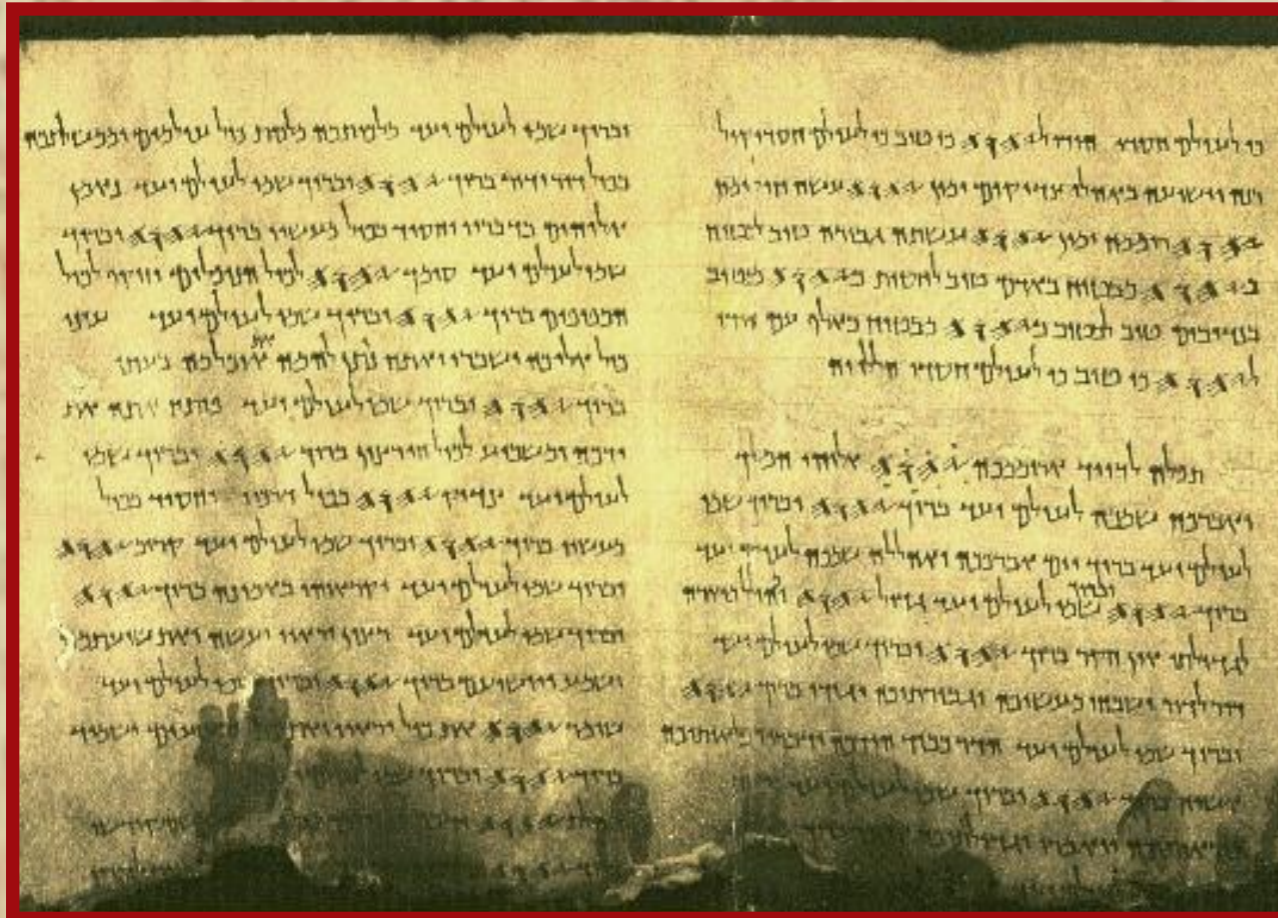 כי לעולם חסדו הודו ל𐤉𐤄𐤅𐤄 כי טוב כי לעולם חסדו קול
רנה וישועה באהלי צדיקים ימין 𐤉𐤄𐤅𐤄 עשה חיל ימין
𐤉𐤄𐤅𐤄 רוממה ימין 𐤉𐤄𐤅𐤄 עשתה גבורה טוב לבטוח
ב𐤉𐤄𐤅𐤄 מבטוח באדם טוב לחסות ב𐤉𐤄𐤅𐤄 מבטוח
בנדיבים טוב לבטוח ב𐤉𐤄𐤅𐤄 מבטוח באלף עם הודו
ל𐤉𐤄𐤅𐤄 כי טוב כי לעולם חסדו הללויה
תפלה לדויד ארוממכה 𐤉𐤄𐤅𐤄 אלוהי המלך
ואברכה שמכה לעולם ועד ברוך 𐤉𐤄𐤅𐤄 וברוך שמו
לעולם ועד ברוך יום אברככה ואהללה שמכה לעולם ועד
ברוך 𐤉𐤄𐤅𐤄 וברוך שמו לעולם ועד גדול 𐤉𐤄𐤅𐤄 ומהולל מאודה
לגדולתו אין חקר ברוך 𐤉𐤄𐤅𐤄 וברוך שמו לעולם ועד
דור לדור ישבחו מעשיכה וגבורותיכה יגידו ברוך 𐤉𐤄𐤅𐤄
וברוך שמו לעולם ועד הדר כבוד הודכה ידברו ונפלאותיכה
אשיח ברוך 𐤉𐤄𐤅𐤄 וברוך שמו לעולם ועד
וברוך שמו לעולם ועד מלכותכה מלכות כול עולמים וממשלתכה
בכול דור ודור ברוך 𐤉𐤄𐤅𐤄 וברוך שמו לעולם ועד נאמן
אלוהים בדבריו וחסיד בכול מעשיו ברוך 𐤉𐤄𐤅𐤄 וברוך
שמו לעולם ועד סומך 𐤉𐤄𐤅𐤄 לכול הנופלים וזוקף לכול
הכפופים ברוך 𐤉𐤄𐤅𐤄 וברוך שמו לעולם ועד עיני
כול אליכה ישברו ואתה נותן להמה את אוכלמה בעתו
ברוך 𐤉𐤄𐤅𐤄 וברוך שמו לעולם ועד פותח אתה את
ידכה ומשביע לכול חי רצון ברוך 𐤉𐤄𐤅𐤄 וברוך שמו
לעולם ועד צדיק 𐤉𐤄𐤅𐤄 בכול דרכיו וחסיד בכול
מעשיו ברוך 𐤉𐤄𐤅𐤄 וברוך שמו לעולם ועד קרוב 𐤉𐤄𐤅𐤄
וברוך שמו לעולם ועד יקראוהו באמונה ברוך 𐤉𐤄𐤅𐤄
וברוך שמו לעולם ועד רצון יראיו יעשה ואת שועתמה
ישמע ויושיעם ברוך 𐤉𐤄𐤅𐤄 וברוך שמו לעולם ועד
שומר 𐤉𐤄𐤅𐤄 את כול יראיו ואת הרשעים ישמיד
ברוך 𐤉𐤄𐤅𐤄 וברוך שמו